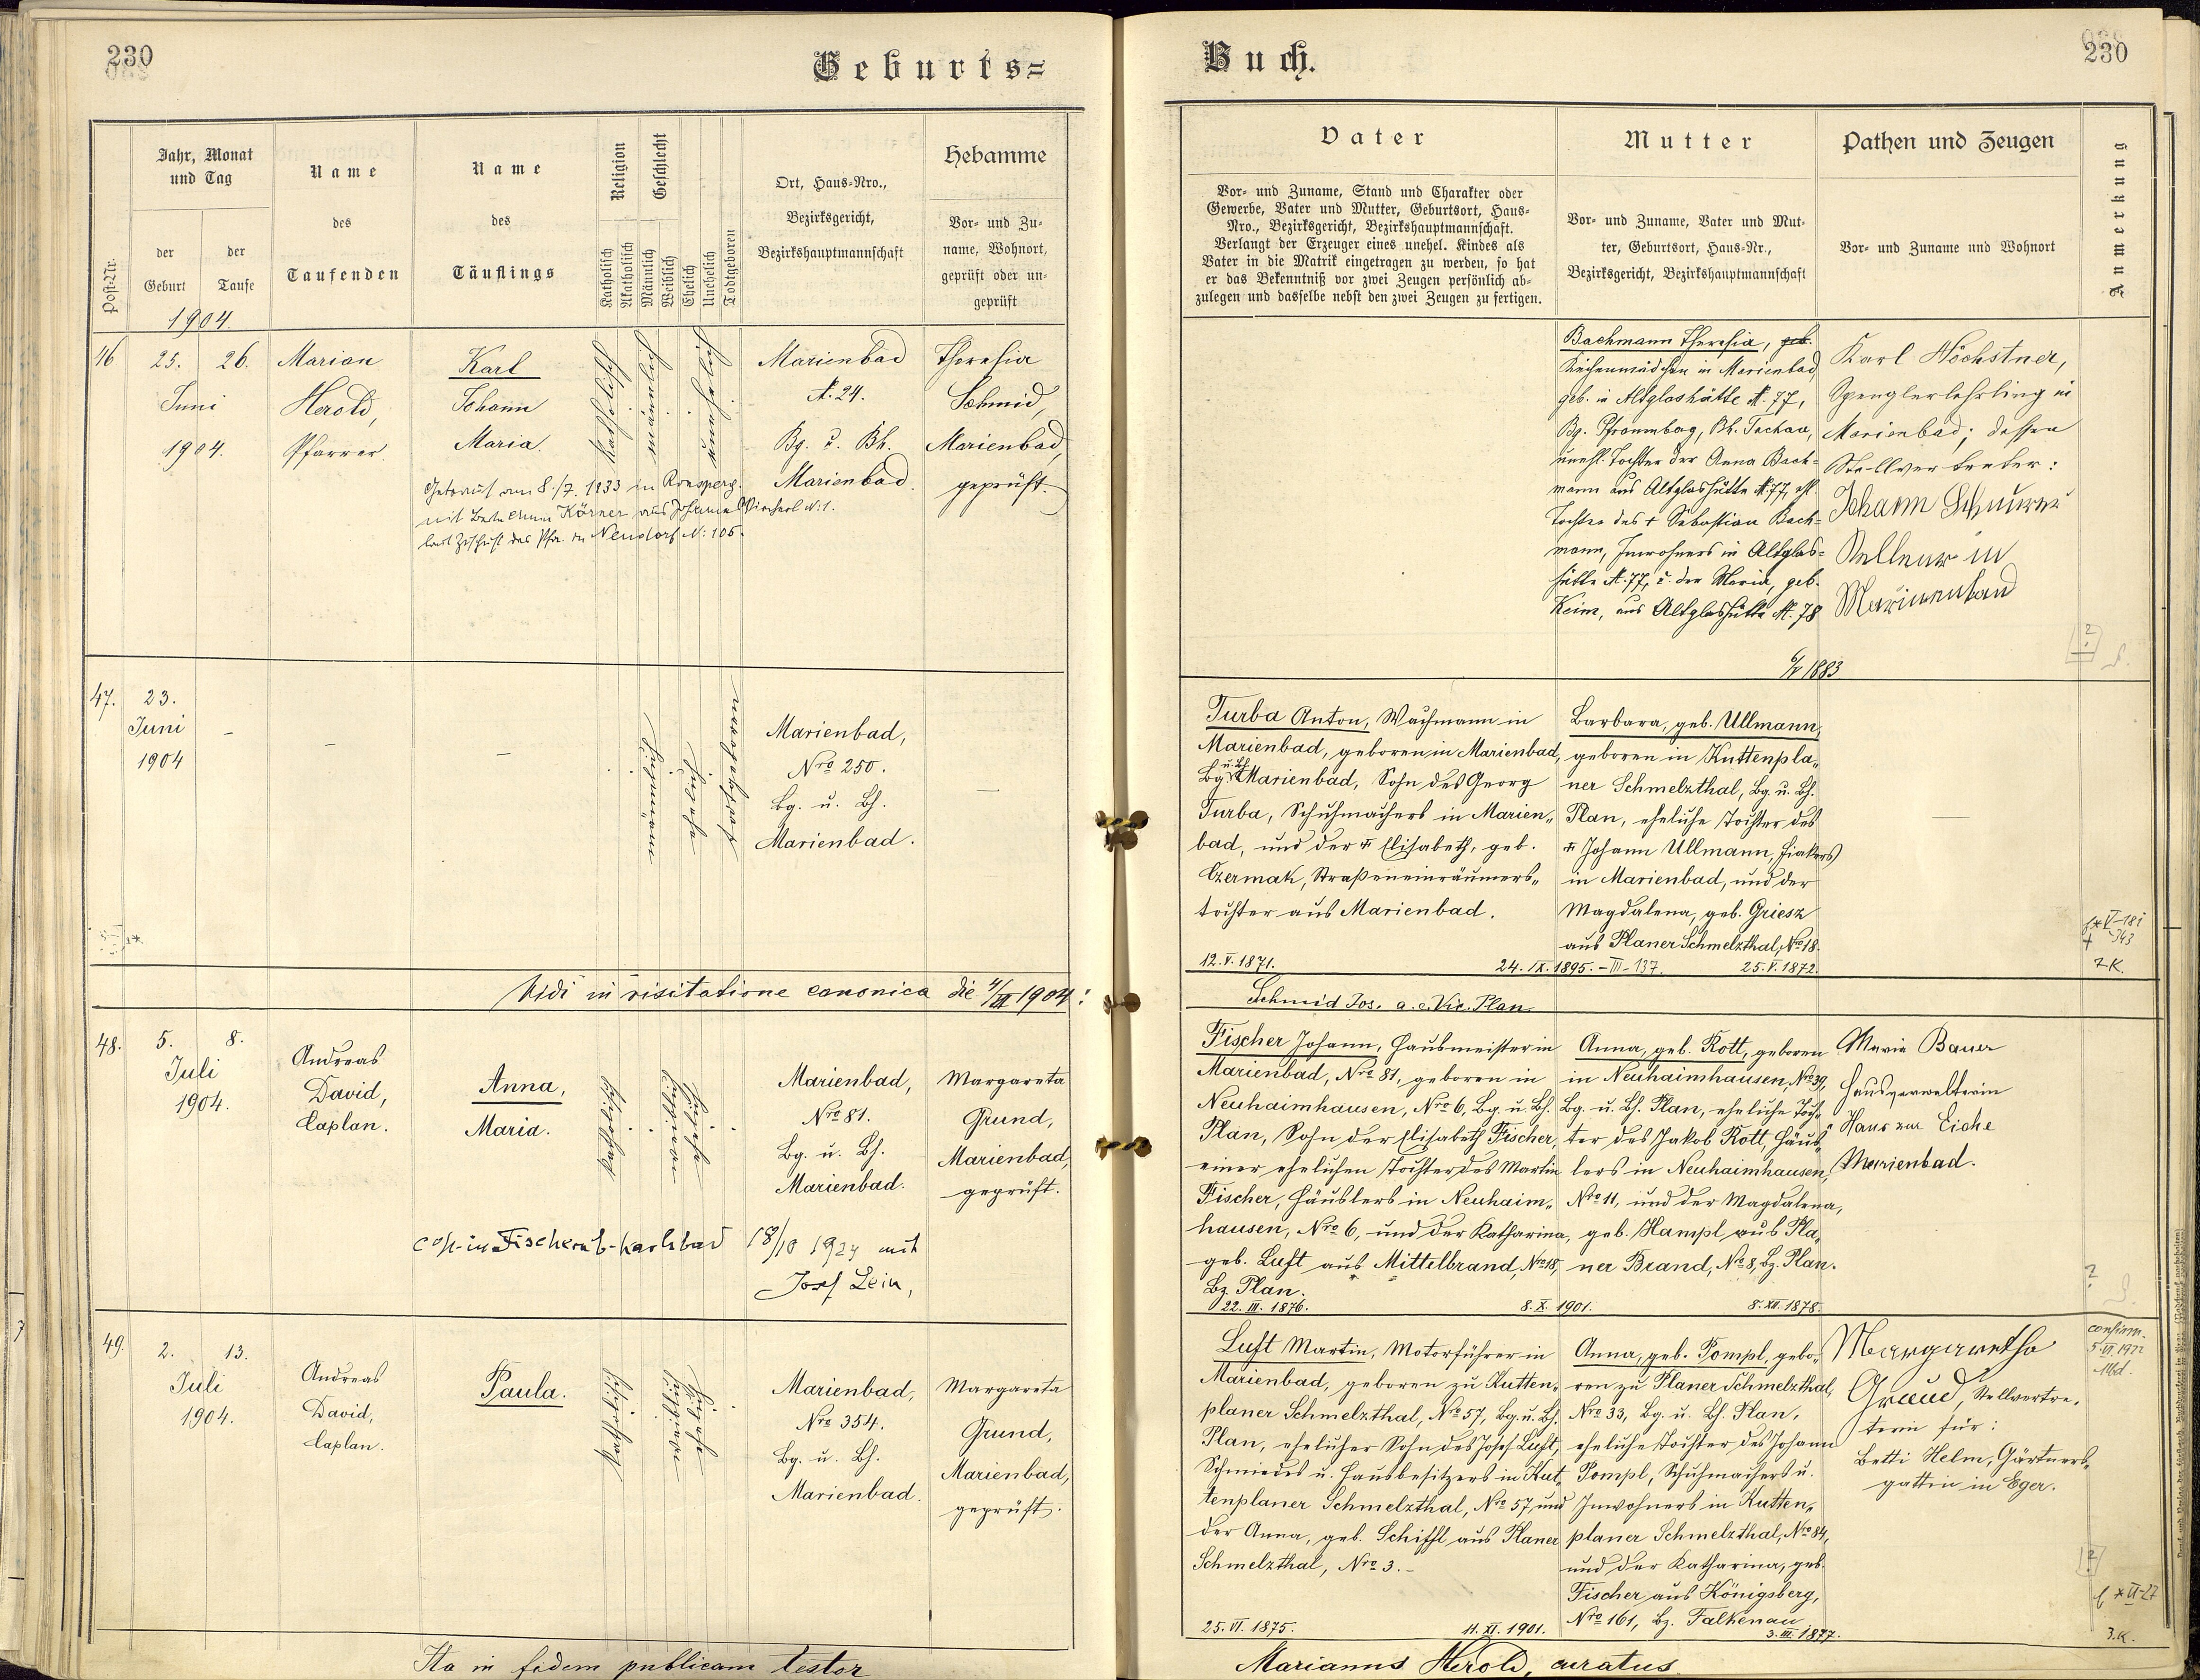 230
Geburts=
Jahr, Monat
und Tag
der
Geburt
der
Taufe
1904.
Post-Nr.
Name
des
Taufenden
Name
des
Täuflings
Religion
Katholisch
Akatholisch
Geschlecht
Männlich
Weiblich
Ehelich
Unehelich
Todtgeboren
Ort, Haus-Nro.,
Bezirksgericht,
Bezirkshauptmannschaft
Hebamme
Vor- und Zu-
name, Wohnort,
geprüft oder un-
geprüft
46
25. 26.
Juni
1904.
Marian
Herold,
Pfarrer.
Karl
Johann
Maria.
Katholisch
männlich
unehelich
Marienbad
N. 24.
Bg. u. Bh.
Marienbad.
Theresia
Schmid,
Marienbad,
geprüft.
Getraut am 8./7. 1933 in Ronsperg.
mit Körner aus N: 1.
laut Zuschrift des Pfr. in Neudorf N: 105.
47.
23.
Juni
1904
männlich
ehelich
todtgeboren
Marienbad,
Nro 250.
Bg. u. Bh.
Marienbad.
Vidi in visitatione canonica die 4/VII 1904:
48.
5. 8.
Juli
1904.
Andreas
David,
Caplan.
Anna,
Maria.
katholisch
weiblich
ehelich
Marienbad,
Nro 81.
Bg. u. Bh.
Marienbad.
Margareta
Grund,
Marienbad,
geprüft.
cop. in Fischern b. Karlsbad 18/10 1924 mit
Josef Lein,
49.
2. 13.
Juli
1904.
Andreas
David,
Caplan.
Paula.
katholisch
weiblich
ehelich
Marienbad,
Nro 354.
Bg. u. Bh.
Marienbad.
Margareta
Grund,
Marienbad,
geprüft.
Ita in fidem publicam testor
Buch.
230
Vater
Vor- und Zuname, Stand und Charakter oder
Gewerbe, Vater und Mutter, Geburtsort, Haus-
Nro., Bezirksgericht, Bezirkshauptmannschaft.
Verlangt der Erzeuger eines unehel. Kindes als
Vater in die Matrik eingetragen zu werden, so hat
er das Bekenntniß vor zwei Zeugen persönlich ab-
zulegen und dasselbe nebst den zwei Zeugen zu fertigen.
Mutter
Vor- und Zuname, Vater und Mut-
ter, Geburtsort, Haus-Nr.,
Bezirksgericht, Bezirkshauptmannschaft
Pathen und Zeugen
Vor- und Zuname und Wohnort
Anmerkung
Bachmann Theresia, geb.
Küchenmädchen in Marienbad,
geb. in Altglashütte N. 77,
Bg. Pfraumberg, Bh. Tachau,
unehl. Tochter der Anna Bach-
mann aus Altglashütte N. 77, ehl.
Tochter des + Sebastian Bach-
mann, Inwohners in Altglas-
hütte N. 77, u. der Maria, geb.
Keim, aus Altglashütte N. 78
6/V 1883
Karl Höchstner,
Spenglerlehrling in
Marienbad; dessen
Stellvertreter:
Johann
Kellner in
Marienbad
Turba Anton, Wachmann in
Marienbad, geboren in Marienbad,
Bg. u. Bh. Marienbad, Sohn des Georg
Turba, Schuhmachers in Marien-
bad, und der + Elisabeth, geb.
Czermak, Straßeneinräumers-
tochter aus Marienbad.
12. V. 1871.
24. IX. 1895. - III - 137.
Barbara, geb. Ullmann,
geboren in Kuttenpla-
ner Schmelzthal, Bg. u. Bh.
Plan, eheliche Tochter des
+ Johann Ullmann, Fiakers
in Marienbad, und der
Magdalena, geb. Griesz
aus Planer Schmelzthal, Nro 18.
25. V. 1872.
7 K.
Schmid Jos. a. e. Vic. Plan.
Fischer Johann, Hausmeister in
Marienbad, Nro 81, geboren in
Neuhaimhausen, Nro 6, Bg. u. Bh.
Plan, Sohn der Elisabeth Fischer,
einer ehelichen Tochter des Martin
Fischer, Häuslers in Neuhaim-
hausen, Nro 6, und der Katharina,
geb. Luft aus Mittelbrand, Nro 18,
Bz. Plan.
22. III. 1876.
8. X. 1901.
Anna, geb. Rott, geboren
in Neuhaimhausen, Nro 39,
Bg. u. Bh. Plan, eheliche Toch-
ter des Jakob Rott, Häus-
lers in Neuhaimhausen,
Nro 11, und der Magdalena,
geb. Hampl aus Pla-
ner Brand, Nro 8, Bz. Plan.
8. XII. 1878.
Maria Bauer
Hausverwalterin
Haus zur Eiche
Marienbad.
Luft Martin, Motorführer in
Marienbad, geboren zu Kutten-
planer Schmelzthal, Nro 57, Bg. u. Bh.
Plan, ehelicher Sohn des Josef Luft,
Schmiedes u. Hausbesitzers in Kut-
tenplaner Schmelzthal, Nro 57 und
der Anna, geb. Schiffl aus Planer
Schmelzthal, Nro 3. -
25. VI. 1875.
11. XI. 1901.
Anna, geb. Pompl, gebo-
ren zu Planer Schmelzthal,
Nro 33, Bg. u. Bh. Plan,
eheliche Tochter des Johann
Pompl, Schuhmachers u.
Inwohners in Kutten-
planer Schmelzthal, Nro 84,
und der Katharina, geb.
Fischer aus Königsberg,
Nro 161, Bz. Falkenau
3. III. 1877.
Margaretha
Grund, Stellvertre-
terin für:
Betti Helm, Gärtners-
gattin in Eger.
confirm.
Mbd.
3. K.
Marianus Herold, curatus